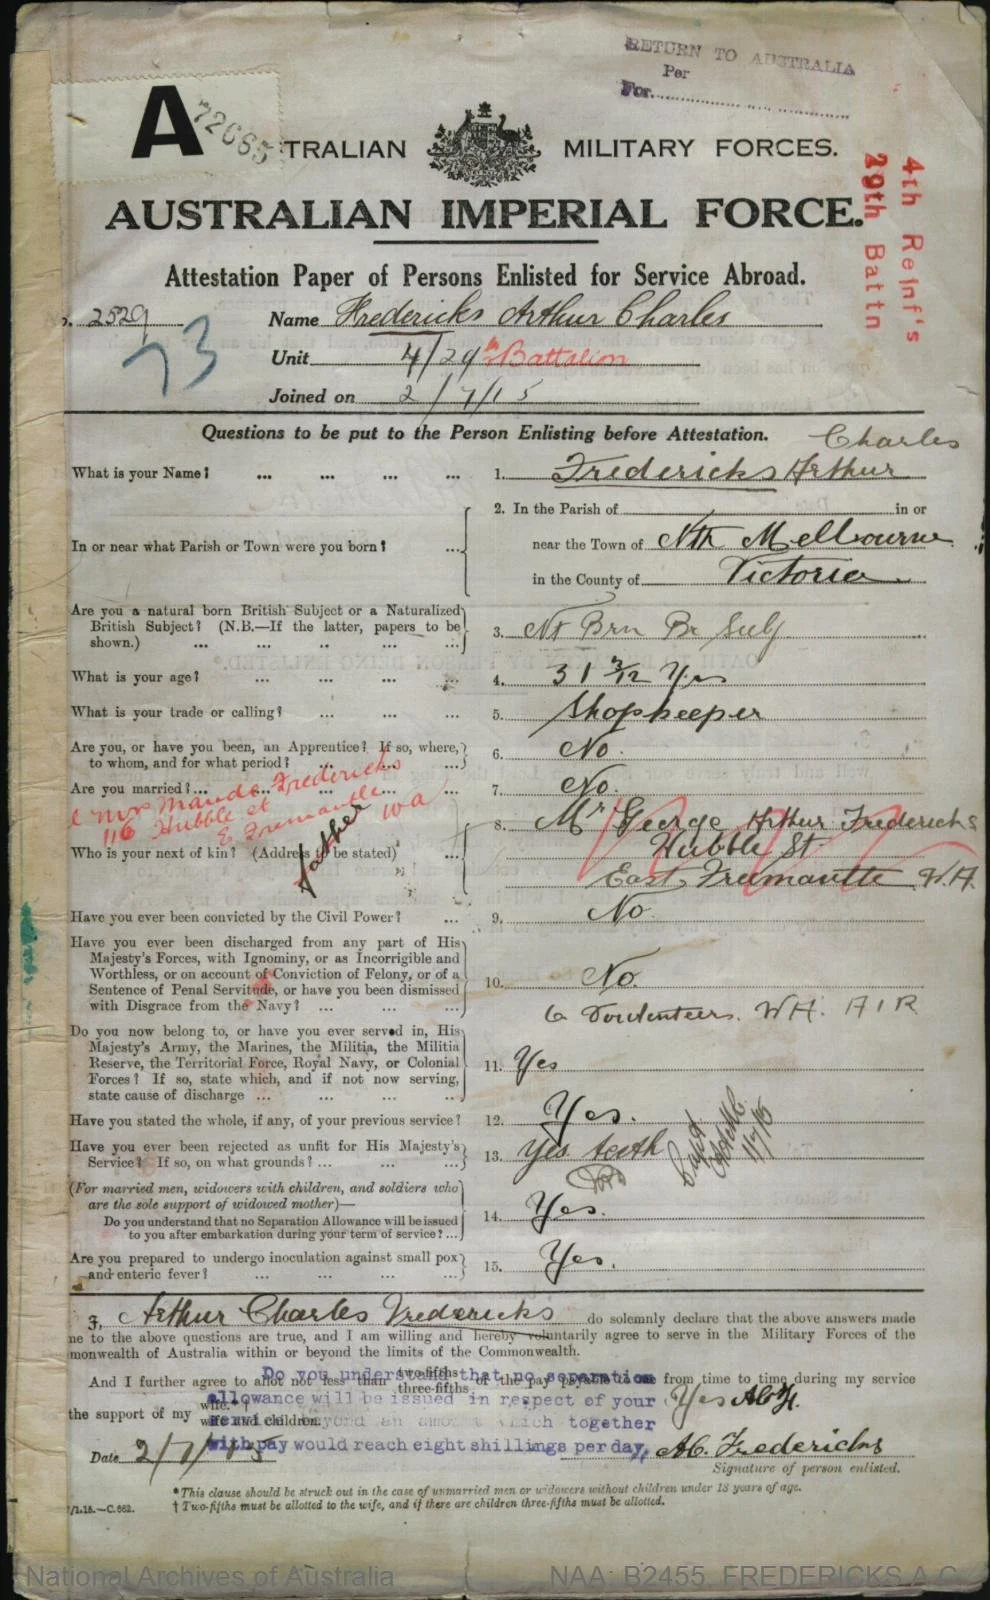 RETURN TO AUSTRALIA
Per
For
A
72665
TRALIAN MILITARY FORCES.
AUSTRALIAN IMPERIAL FORCE.
4th Reinf's
29th Battn
Attestation Paper of Persons Enlisted for Service Abroad.
o. 2529 Name Fredericks Arthur Charles
73
Unit 4/29th Battalion
Joined on 2/7/15
Questions to be put to the Person Enlisting before Attestation.
Charles
What is your Name? ... ... ... ... 1. Fredericks Arthur
2. In the Parish of in or
In or near what Parish or Town were you born? ... near the Town of Nth Melbourne
in the County of Victoria
Are you a natural born British Subject or a Naturalized
British Subject? (N.B.—If the latter, papers to be
shown.) ... ... ... ... ... 3. Nt Brn Br Subj
What is your age? ... ... ... ... 4. 31 3/12 Yrs
What is your trade or calling? ... ... ... 5. Shopkeeper
Are you, or have you been, an Apprentice? If so, where,
to whom, and for what period? ... ... ... 6. No.
Are you married? ... ... ... ... ... 7. No.
Mrs Maude Fredericks
116 Hubble St
E Fremantle
WA
Father
Who is your next of kin? (Address to be stated) ... 8. Mr George Arthur Fredericks
Hubble St
East Fremantle W.A.
Have you ever been convicted by the Civil Power? ... 9. No
Have you ever been discharged from any part of His
Majesty's Forces, with Ignominy, or as Incorrigible and
Worthless, or on account of Conviction of Felony, or of a
Sentence of Penal Servitude, or have you been dismissed
with Disgrace from the Navy? ... ... ... 10. No.
WA. A I R
Do you now belong to, or have you ever served in, His
Majesty's Army, the Marines, the Militia, the Militia
Reserve, the Territorial Force, Royal Navy, or Colonial
Forces? If so, state which, and if not now serving,
state cause of discharge ... ... ... ... 11. Yes
Have you stated the whole, if any, of your previous service? 12. Yes.
Have you ever been rejected as unfit for His Majesty's
Service? If so, on what grounds? ... ... ... 13. Yes teeth
11/7/15
(For married men, widowers with children, and soldiers who
are the sole support of widowed mother)—
Do you understand that no Separation Allowance will be issued
to you after embarkation during your term of service? ... 14. Yes.
Are you prepared to undergo inoculation against small pox
and enteric fever? ... ... ... ... 15. Yes.
I, Arthur Charles Fredericks do solemnly declare that the above answers made
me to the above questions are true, and I am willing and hereby voluntarily agree to serve in the Military Forces of the
monwealth of Australia within or beyond the limits of the Commonwealth.
And I further agree to allot not less than two-fifths three-fifths of the pay payable to me from time to time during my service
the support of my wife. † wife and children.
Do you understand that no separation
allowance will be issued in respect of your
service beyond an amount which together
with pay would reach eight shillings per day,
Yes ACF.
Date 2/7/15 AC. Fredericks
Signature of person enlisted.
* This clause should be struck out in the case of unmarried men or widowers without children under 18 years of age.
† Two-fifths must be allotted to the wife, and if there are children three-fifths must be allotted.
/1.15.—C.662.
National Archives of Australia NAA: B2455, FREDERICKS A C